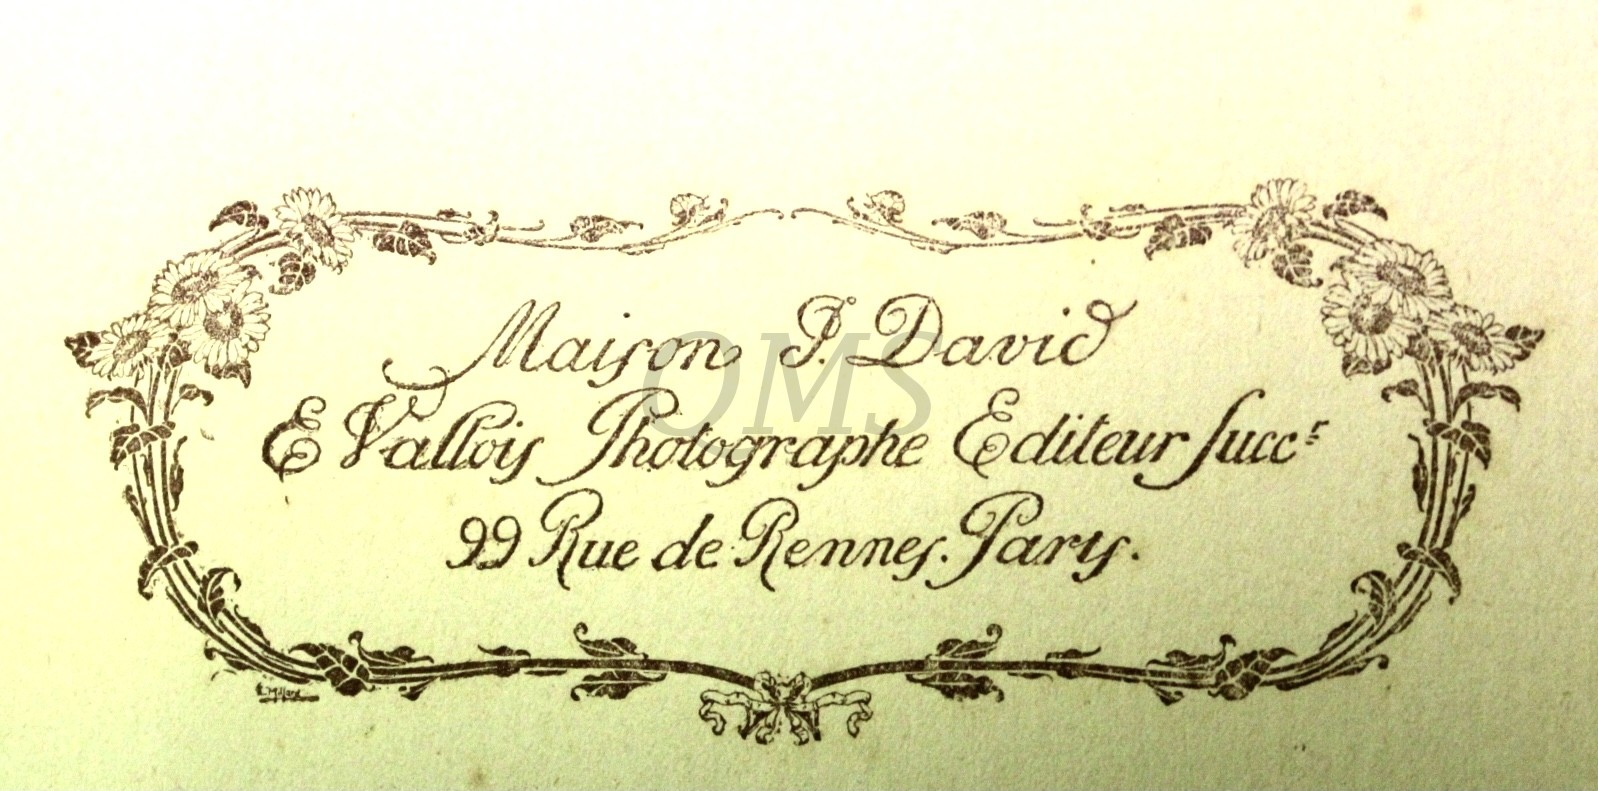 Maison J. David
E Vallois Photographe Editeur Succr
99 Rue de Rennes. Paris.
QMS